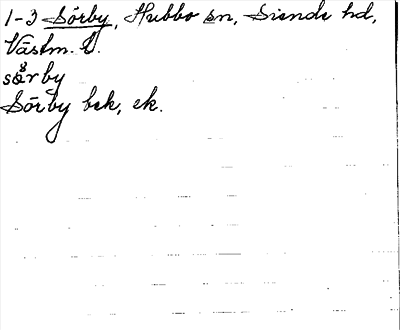 1-3 Sörby, Hubbo sn, Siende hd,
Västm. l.
sörby
Sörby bek, ek.